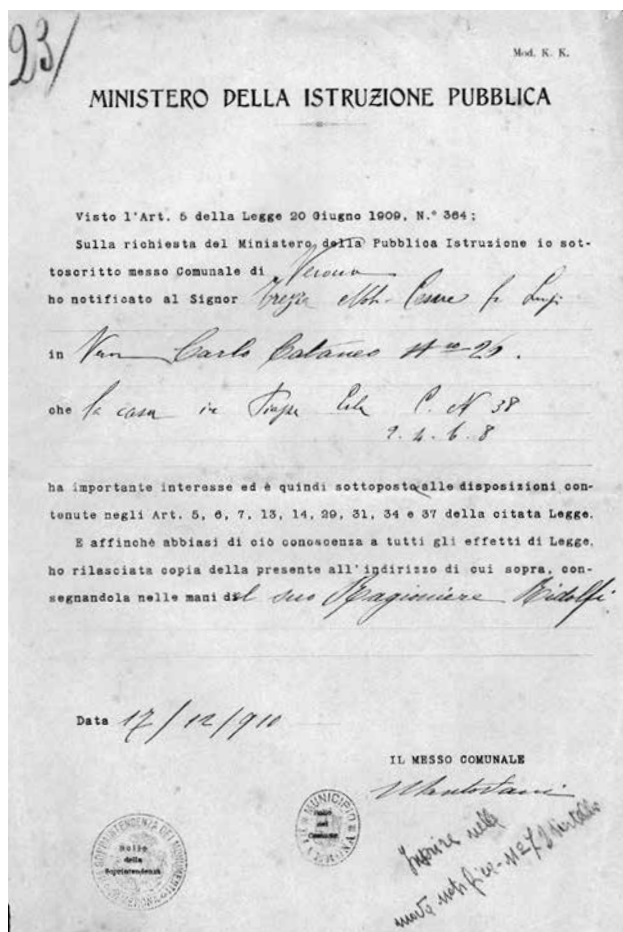 23/
Mod. K. K.
MINISTERO DELLA ISTRUZIONE PUBBLICA
Visto l'Art. 5 della Legge 20 Giugno 1909, N.° 364;
Sulla richiesta del Ministero della Pubblica Istruzione io sot-
toscritto messo Comunale di Verona
ho notificato al Signor Trezza Nob. Cesare fu Luigi
in Carlo Cataneo N° 26.
che la casa in Piazza Erbe C. N 38
2. 4. 6. 8
ha importante interesse ed è quindi sottoposta alle disposizioni con-
tenute negli Art. 5, 6, 7, 13, 14, 29, 31, 34 e 37 della citata Legge.
E affinchè abbiasi di ciò conoscenza a tutti gli effetti di Legge,
ho rilasciata copia della presente all'indirizzo di cui sopra, con-
segnandola nelle mani del suo Ragioniere Ridolfi
Data 17/12/910
IL MESSO COMUNALE
MUNICIPIO DI VERONA
SOPRINTENDENZA DEI MONUMENTI
VERONA
Bollo
della
Soprintendenza
nuova notifica